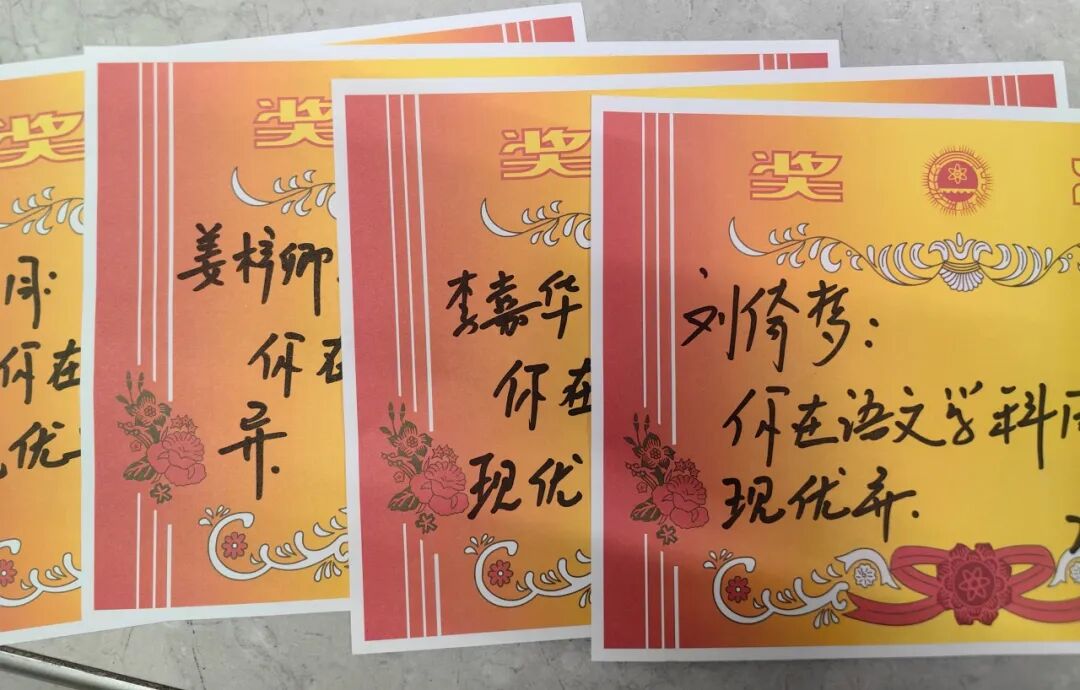 奖
你在
优
奖
姜梓卿
你在
异.
奖
李嘉华
你在
现优
奖
刘倚梦:
你在语文学科
现优异.